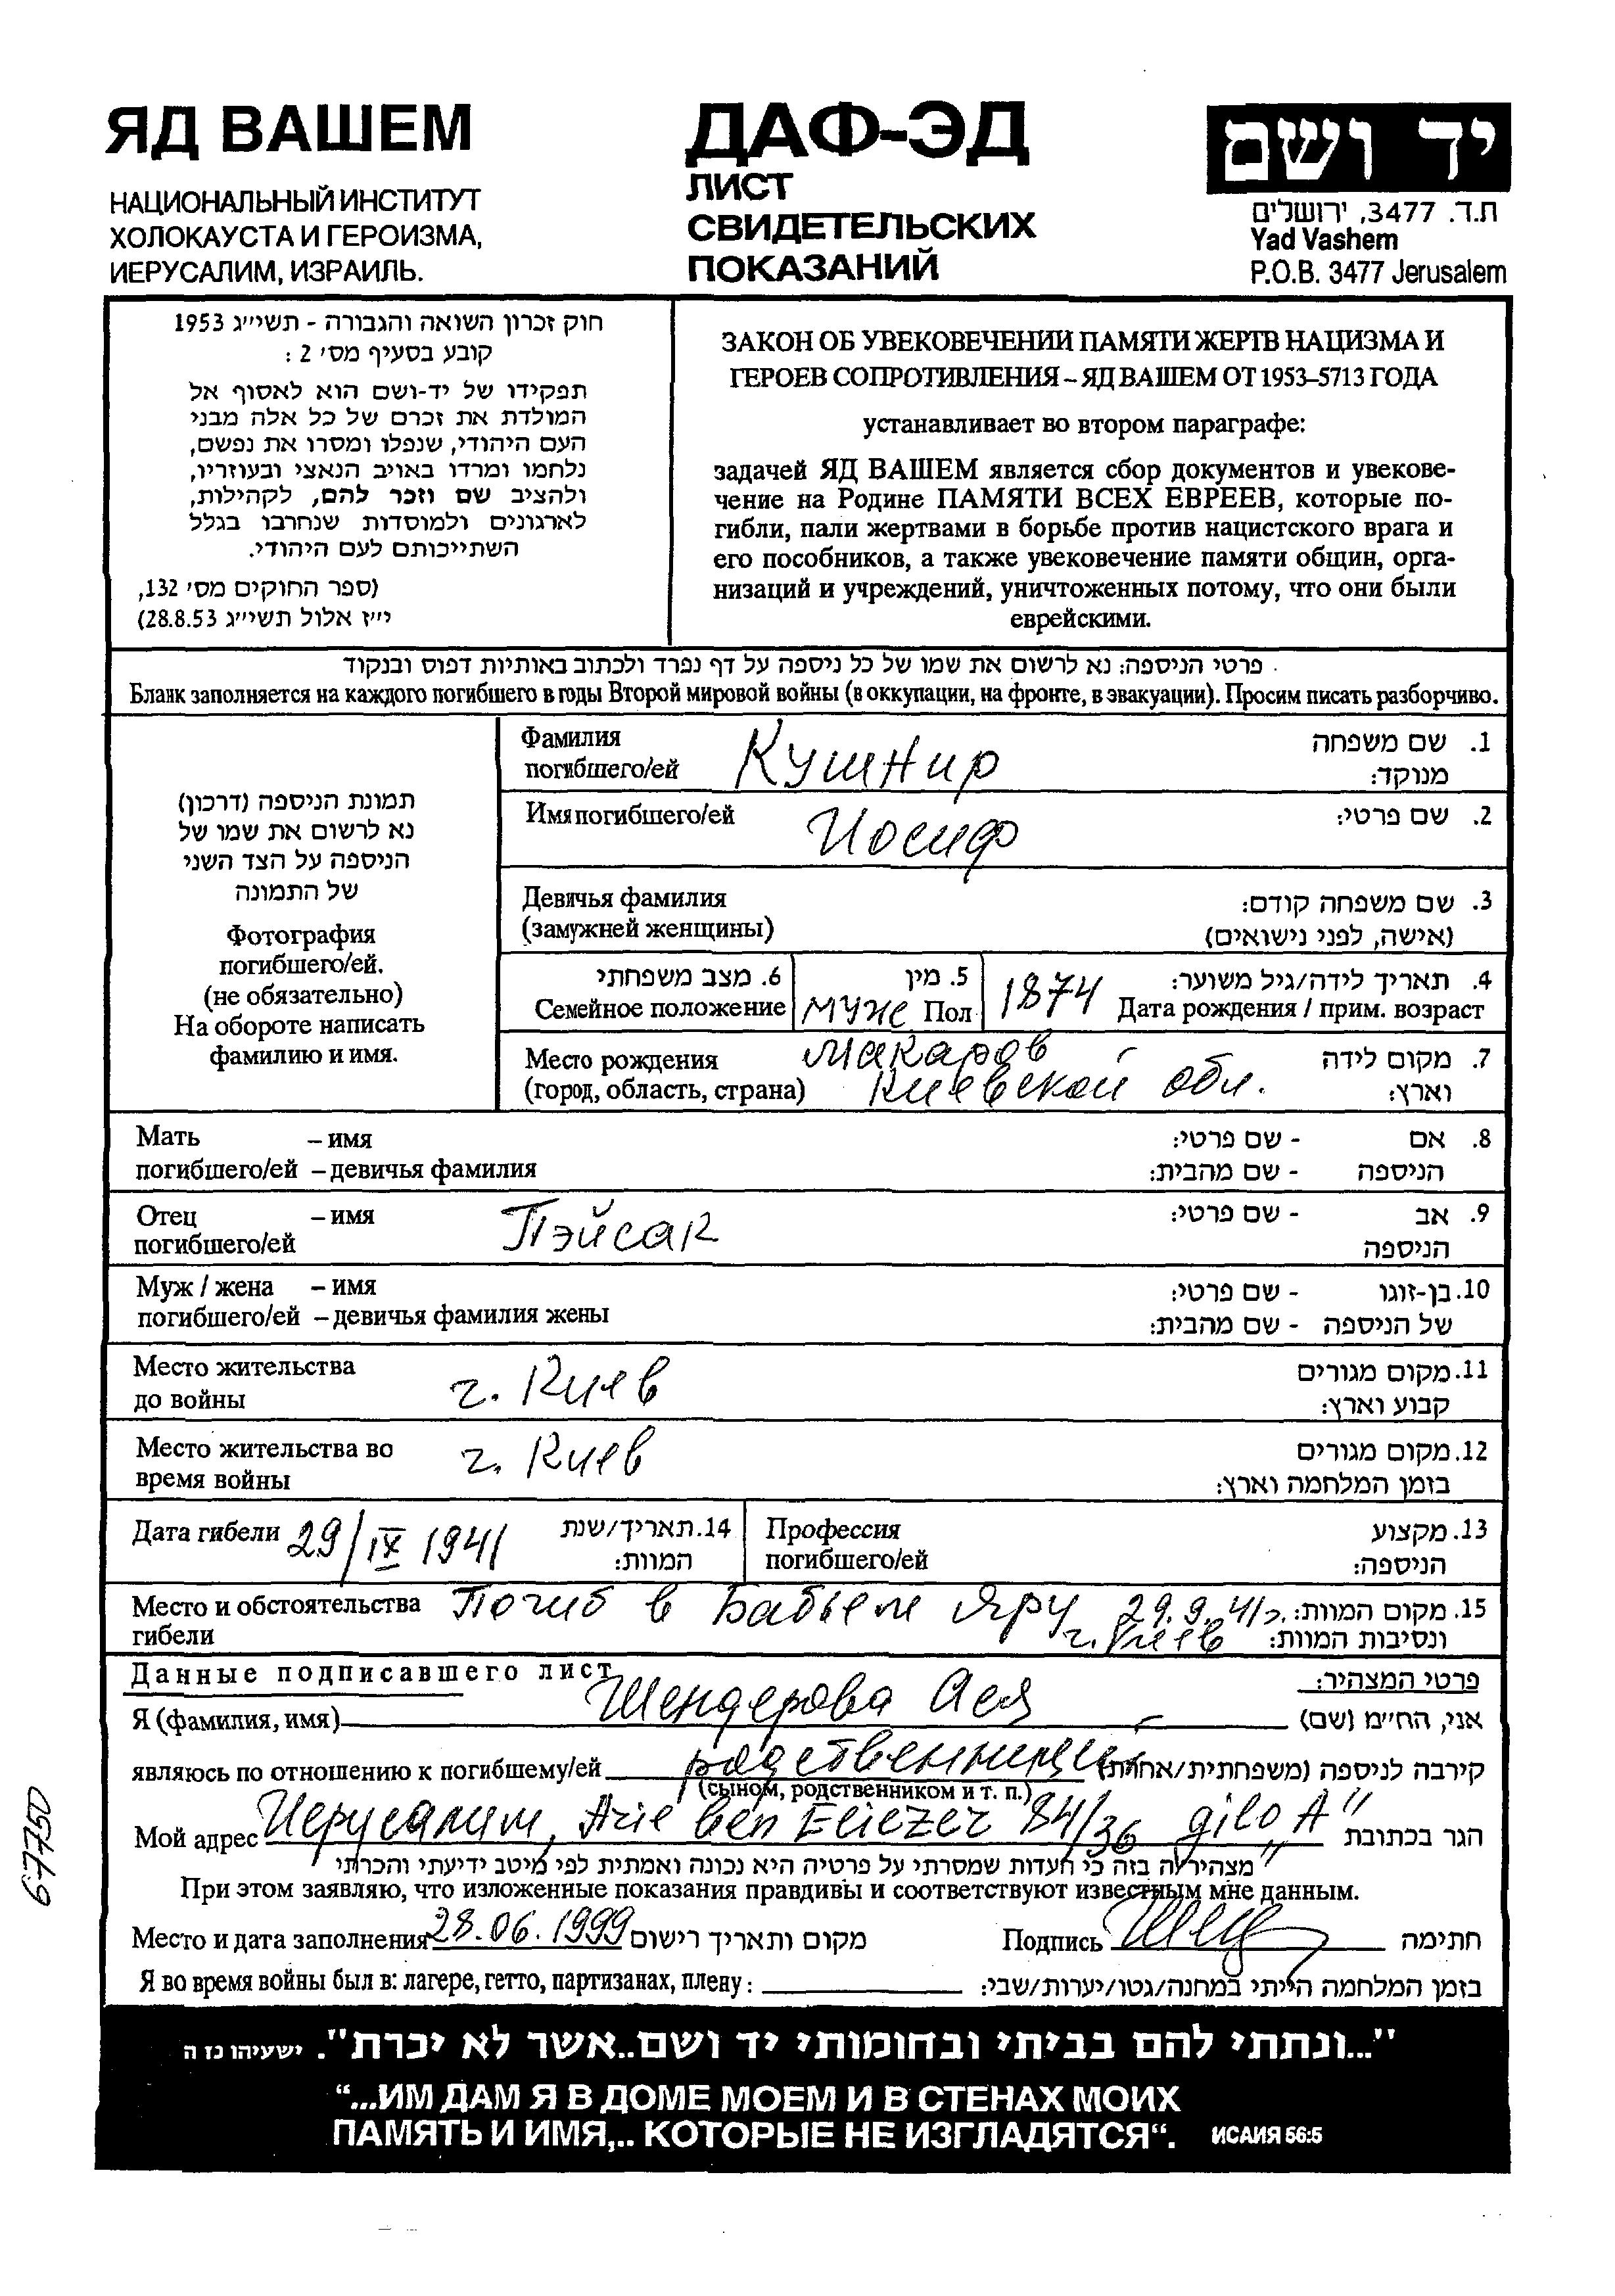 ЯД ВАШЕМ
НАЦИОНАЛЬНЫЙ ИНСТИТУТ
ХОЛОКАУСТА И ГЕРОИЗМА,
ИЕРУСАЛИМ, ИЗРАИЛЬ.
ДАФ-ЭД
ЛИСТ
СВИДЕТЕЛЬСКИХ
ПОКАЗАНИЙ
יד ושם
ת.ד. 3477, ירושלים
Yad Vashem
P.O.B. 3477 Jerusalem
חוק זכרון השואה והגבורה - תשי״ג 1953
קובע בסעיף מס׳ 2 :
תפקידו של יד-ושם הוא לאסוף אל
המולדת את זכרם של כל אלה מבני
העם היהודי, שנפלו ומסרו את נפשם,
נלחמו ומרדו באויב הנאצי ובעוזריו,
ולהציב שם וזכר להם, לקהילות,
לארגונים ולמוסדות שנחרבו בגלל
השתייכותם לעם היהודי.
(ספר החוקים מס׳ 132,
י״ז אלול תשי״ג 28.8.53)
ЗАКОН ОБ УВЕКОВЕЧЕНИИ ПАМЯТИ ЖЕРТВ НАЦИЗМА И
ГЕРОЕВ СОПРОТИВЛЕНИЯ – ЯД ВАШЕМ ОТ 1953–5713 ГОДА
устанавливает во втором параграфе:
задачей ЯД ВАШЕМ является сбор документов и увекове-
чение на Родине ПАМЯТИ ВСЕХ ЕВРЕЕВ, которые по-
гибли, пали жертвами в борьбе против нацистского врага и
его пособников, а также увековечение памяти общин, орга-
низаций и учреждений, уничтоженных потому, что они были
еврейскими.
פרטי הניספה: נא לרשום את שמו של כל ניספה על דף נפרד ולכתוב באותיות דפוס ובנקוד
Бланк заполняется на каждого погибшего в годы Второй мировой войны (в оккупации, на фронте, в эвакуации). Просим писать разборчиво.
תמונת הניספה (דרכון)
נא לרשום את שמו של
הניספה על הצד השני
של התמונה
Фотография
погибшего/ей.
(не обязательно)
На обороте написать
фамилию и имя.
Фамилия Кушнир 1. שם משפחה
погибшего/ей מנוקד:
Имя погибшего/ей Иосиф 2. שם פרטי:
Девичья фамилия 3. שם משפחה קודם:
(замужней женщины) (אישה, לפני נישואים)
6. מצב משפחתי 5. מין 1874 4. תאריך לידה/גיל משוער:
Семейное положение муж Пол Дата рождения / прим. возраст
Место рождения Макаров 7. מקום לידה
(город, область, страна) Киевской обл. וארץ:
Мать – имя 8. אם - שם פרטי:
погибшего/ей – девичья фамилия הניספה - שם מהבית:
Отец – имя Пэйсак 9. אב - שם פרטי:
погибшего/ей הניספה
Муж / жена – имя 10. בן-זוגו - שם פרטי:
погибшего/ей – девичья фамилия жены של הניספה - שם מהבית:
Место жительства г. Киев 11. מקום מגורים
до войны קבוע וארץ:
Место жительства во г. Киев 12. מקום מגורים
время войны בזמן המלחמה וארץ:
Дата гибели 29/IX 1941 14. תאריך/שנת המוות:
Профессия 13. מקצוע
погибшего/ей הניספה:
Место и обстоятельства Погиб в Бабьем Яру 29.9.41г. 15. מקום המוות:
гибели г. Киев ונסיבות המוות:
Данные подписавшего лист פרטי המצהיר:
Я (фамилия, имя) Шендерова Ася אני, הח״מ (שם)
являюсь по отношению к погибшему/ей родственницей קירבה לניספה (משפחתית/אחרת)
(сыном, родственником и т. п.)
Мой адрес Иерусалим, Arie ben Eliezer 84/36 gilo „A" הגר בכתובת
מצהיר/ה בזה כי העדות שמסרתי על פרטיה היא נכונה ואמתית לפי מיטב ידיעתי והכרתי
При этом заявляю, что изложенные показания правдивы и соответствуют известным мне данным.
Место и дата заполнения 28.06.1999 מקום ותאריך רישום Подпись חתימה
Я во время войны был в: лагере, гетто, партизанах, плену: בזמן המלחמה הייתי במחנה/גטו/יערות/שבי:
"...ונתתי להם בביתי ובחומותי יד ושם..אשר לא יכרת". ישעיהו נז ה
“...ИМ ДАМ Я В ДОМЕ МОЕМ И В СТЕНАХ МОИХ
ПАМЯТЬ И ИМЯ,.. КОТОРЫЕ НЕ ИЗГЛАДЯТСЯ“. ИСАИЯ 56:5
67750